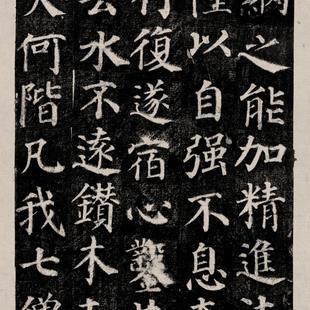 之能加精進
以自强不息
行復遂宿心鑿
去水不遠鑽木
火何階凡我七僧